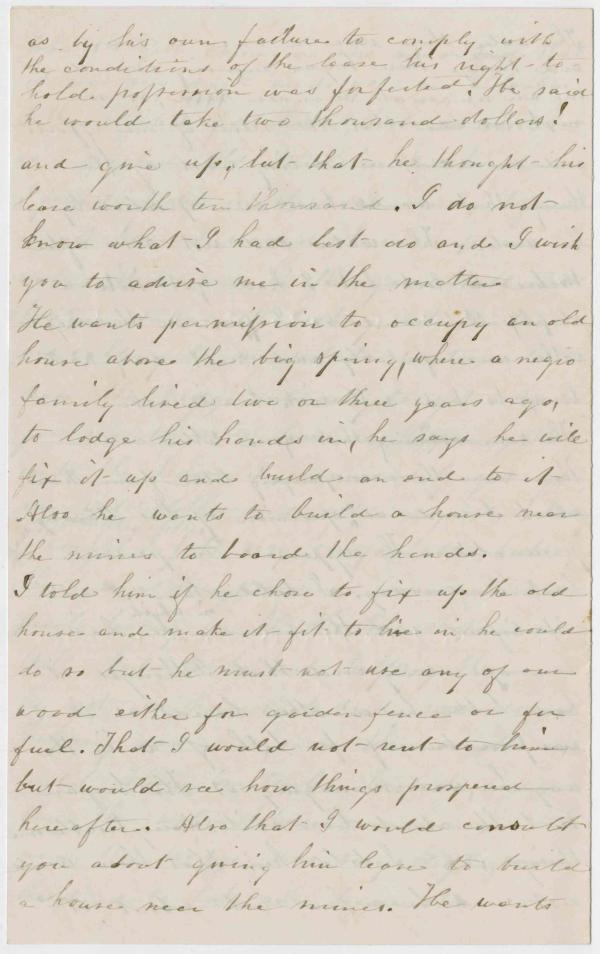 as by his own failure to comply with
the conditions of the lease his right to
hold possession was forfeited. He said
he would take two thousand dollars!
and give up, but that he thought his
lease worth ten thousand. I do not
know what I had best do and I wish
you to advise me in the matter
He wants permission to occupy an old
house above the big spring, where a negro
family lived two or three years ago,
to lodge his hands in, he says he will
fix it up and build an end to it
Also he wants to build a house near
the mines to board the hands.
I told him if he chose to fix up the old
house and make it fit to live in he could
do so but he must not use any of our
wood either for garden fence or for
fuel. That I would not rent to him
but would see how things prospered
hereafter. Also that I would consult
you about giving him leave to build
a house near the mines. He wants